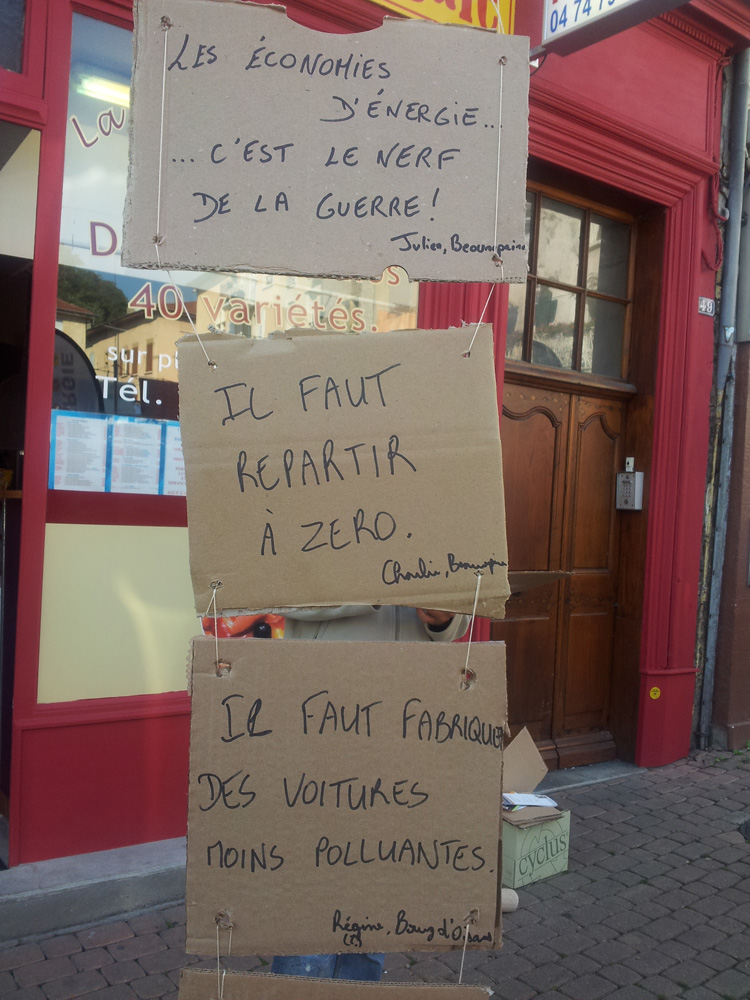 04 74 7
La
LES ÉCONOMIES
D'ÉNERGIE...
... C'EST LE NERF
DE LA GUERRE!
Julien, Beaurepaire
D
es
40 variétés.
sur pi
Tél.
49
IL FAUT
REPARTIR
À ZERO.
Charlie,
IL FAUT FABRIQUER
DES VOITURES
MOINS POLLUANTES.
Régine, Bourg d'Oisans
cyclus